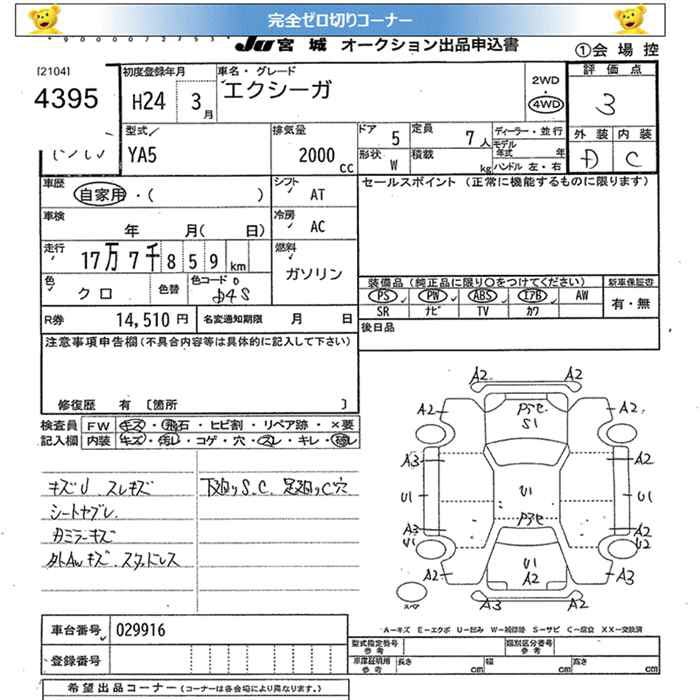 完全ゼロ切りコーナー
JU 宮城 オークション出品申込書
①会場控
[2104]
4395
初度登録年月
H24 3月
車名・グレード
エクシーガ
2WD
・
4WD
評価点
3
外装 内装
D C
型式
YA5
排気量
2000 cc
ドア 5
定員 7人
ディーラー・並行
モデル年式 年
形状 W
積載 kg
ハンドル 左・右
車歴
自家用・( )
シフト AT
セールスポイント (正常に機能するものに限ります)
車検
年 月( 日)
冷房 AC
走行
17万7千859 km
燃料
ガソリン
色
クロ
色替
色コードNo
D4S
装備品(純正品に限り○をつけてください)
新車保証書
PS PW ABS エアB AW
SR ナビ TV カワ
有・無
R券 14,510円
名変通知期限 月 日
後日品
注意事項申告欄(不具合内容等は具体的に記入して下さい)
修復歴 有 〔箇所 〕
検査員記入欄
FW キズ・飛石・ヒビ割・リペア跡・×要
内装 キズ・汚レ・コゲ・穴・スレ・キレ・
キズU スレキズ
シートヤブレ
カミラーキズ
外AWキズ スタッドレス
下廻りS.C. 足廻りC穴
A2 A2
A2 A2
S1
A3 A2
U1 U1 U1
A3 A2
U1 U2
U1
A2 A2 A3
A3 A2
スペア
A−キズ E−エクボ U−凹み W−補修跡 S−サビ C−腐食 XX−交換済
車台番号 029916
登録番号
型式指定番号 参考
類別区分番号 参考
車庫証明用 参考
長さ cm
幅 cm
高さ cm
希望出品コーナー (コーナーは各会場により異なります。)